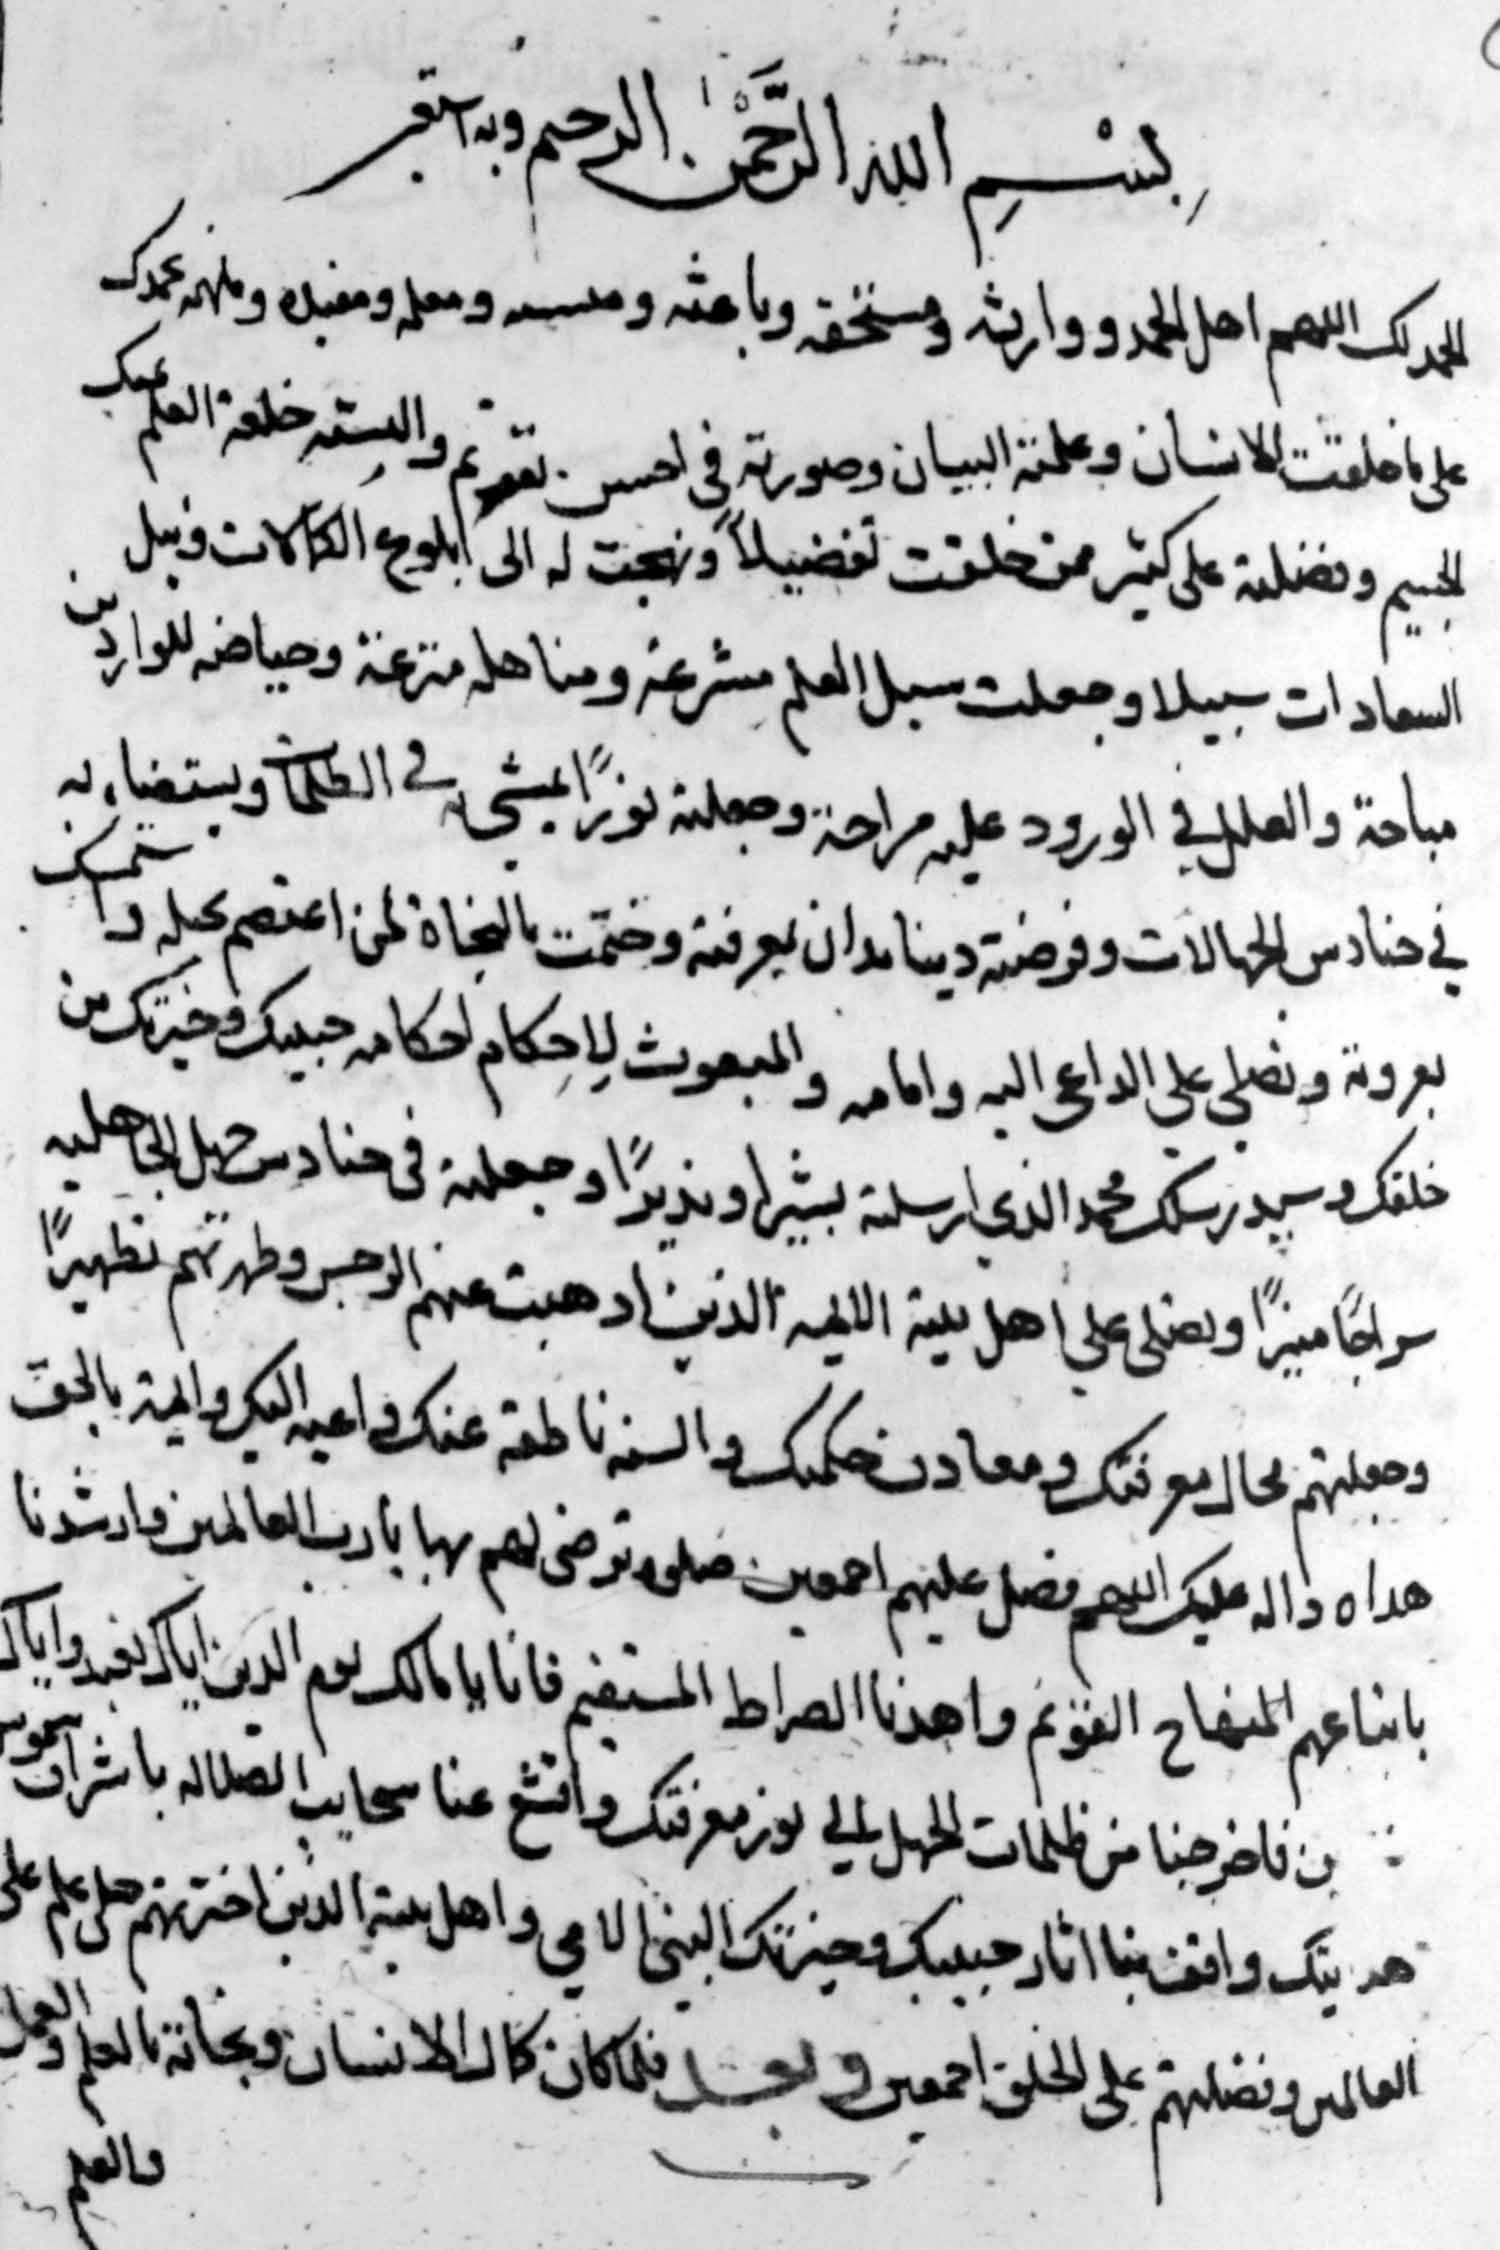 بِسْمِ الله الرَّحْمٰن الرحيم وبه استعين
الحمد لك اللهم اهل الحمد ووارثه ومستحقه وباعثه ومسببه ومعلمه ومفيده وملهمه نحمدك
على ما خلقت الانسان وعلمته البيان وصورته في احسن تقويم والبسته خلعة العلم
الجسيم وفضلته على كثير ممن خلقت تفضيلاً ونهجت له الى بلوغ الكمالات ونيل
السعادات سبيلا وجعلت سبل العلم مشرعة ومناهله مترعة وحياضه للواردين
مباحة والعلل في الورود عليه مزاحة وجعلته نورًا يمشي به في الظلمات ويستضاء به
في حنادس الجهالات وفرضته دينا يدان بمعرفته وختمت بالنجاة لمن اعتصم بحبله واستمسك
بعروته ونصلي على الداعي اليه وامامه والمبعوث لاِحِكام احكامه حبيبك وخيرتك من
خلقك وسيد رسلك محمد الذي ارسلته بشيرا ونذيرًا وجعلته في حنادس جهل الجاهليه
سراجًا منيرًا ونصلي على اهل بيته الالهية الذين اذهبت عنهم الرجس وطهرتهم تطهيرًا
وجعلتهم محال معرفتك ومعادن حكمتك والسنه ناطقة عنك داعيه اليك وائمة بالحق
هداه داله عليك اللهم فصل عليهم اجمعين صلوه ترضى لهم بها يا رب العالمين وارشدنا
باتباعهم المنهاج القويم واهدنا الصراط المستقيم فانا يا مالك يوم الدين اياك نعبد واياك
ين فاخرجنا من ظلمات الجهل الى نور معرفتك واقشع عنا سحايب الضلاله باشراق شموس
هدايتك واقف بنا اثار حبيبك وخيرتك النبي الامي واهل بيته الذين اخترتهم على علم على
العالمين وفضلتهم على الخلق اجمعين وبعد فلما كان كمال الانسان ونجاته بالعلم والعمل
والعلم